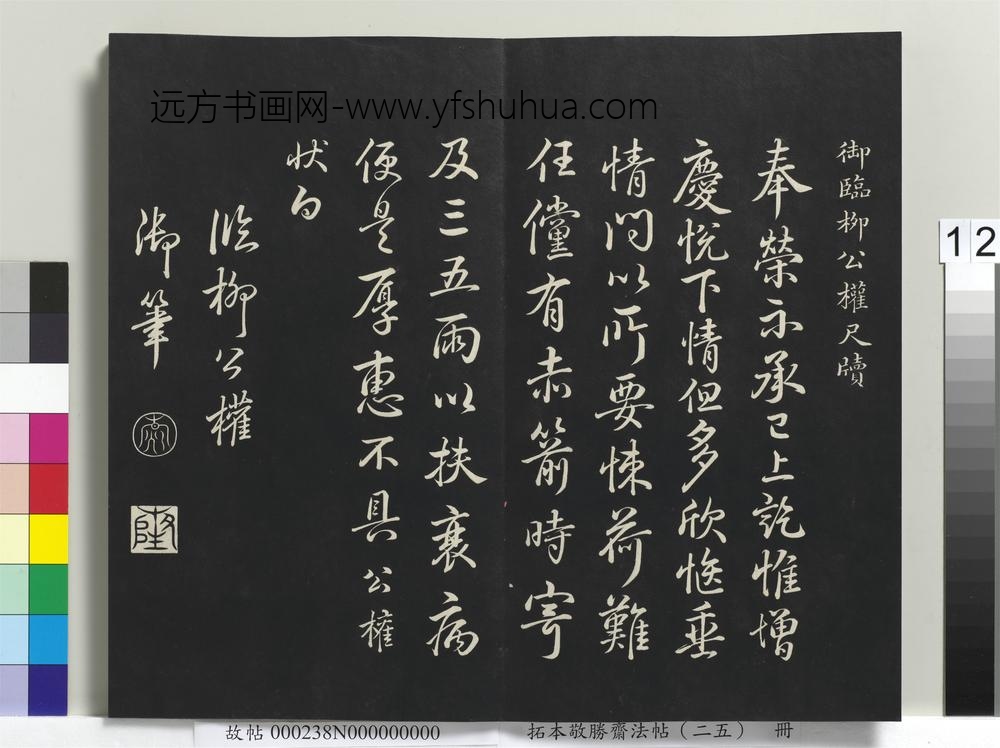 远方书画网-www.yfshuhua.com
御臨柳公權尺牘
奉榮示承已上訖惟增
慶悅下情但多欣愜垂
情問以所要悚荷難
任儻有赤箭時寄
及三五兩以扶衰病
便是厚惠不具公權
状白
臨柳公權
御筆
隆
12
故帖 000238N000000000
拓本敬勝齋法帖（二五） 冊